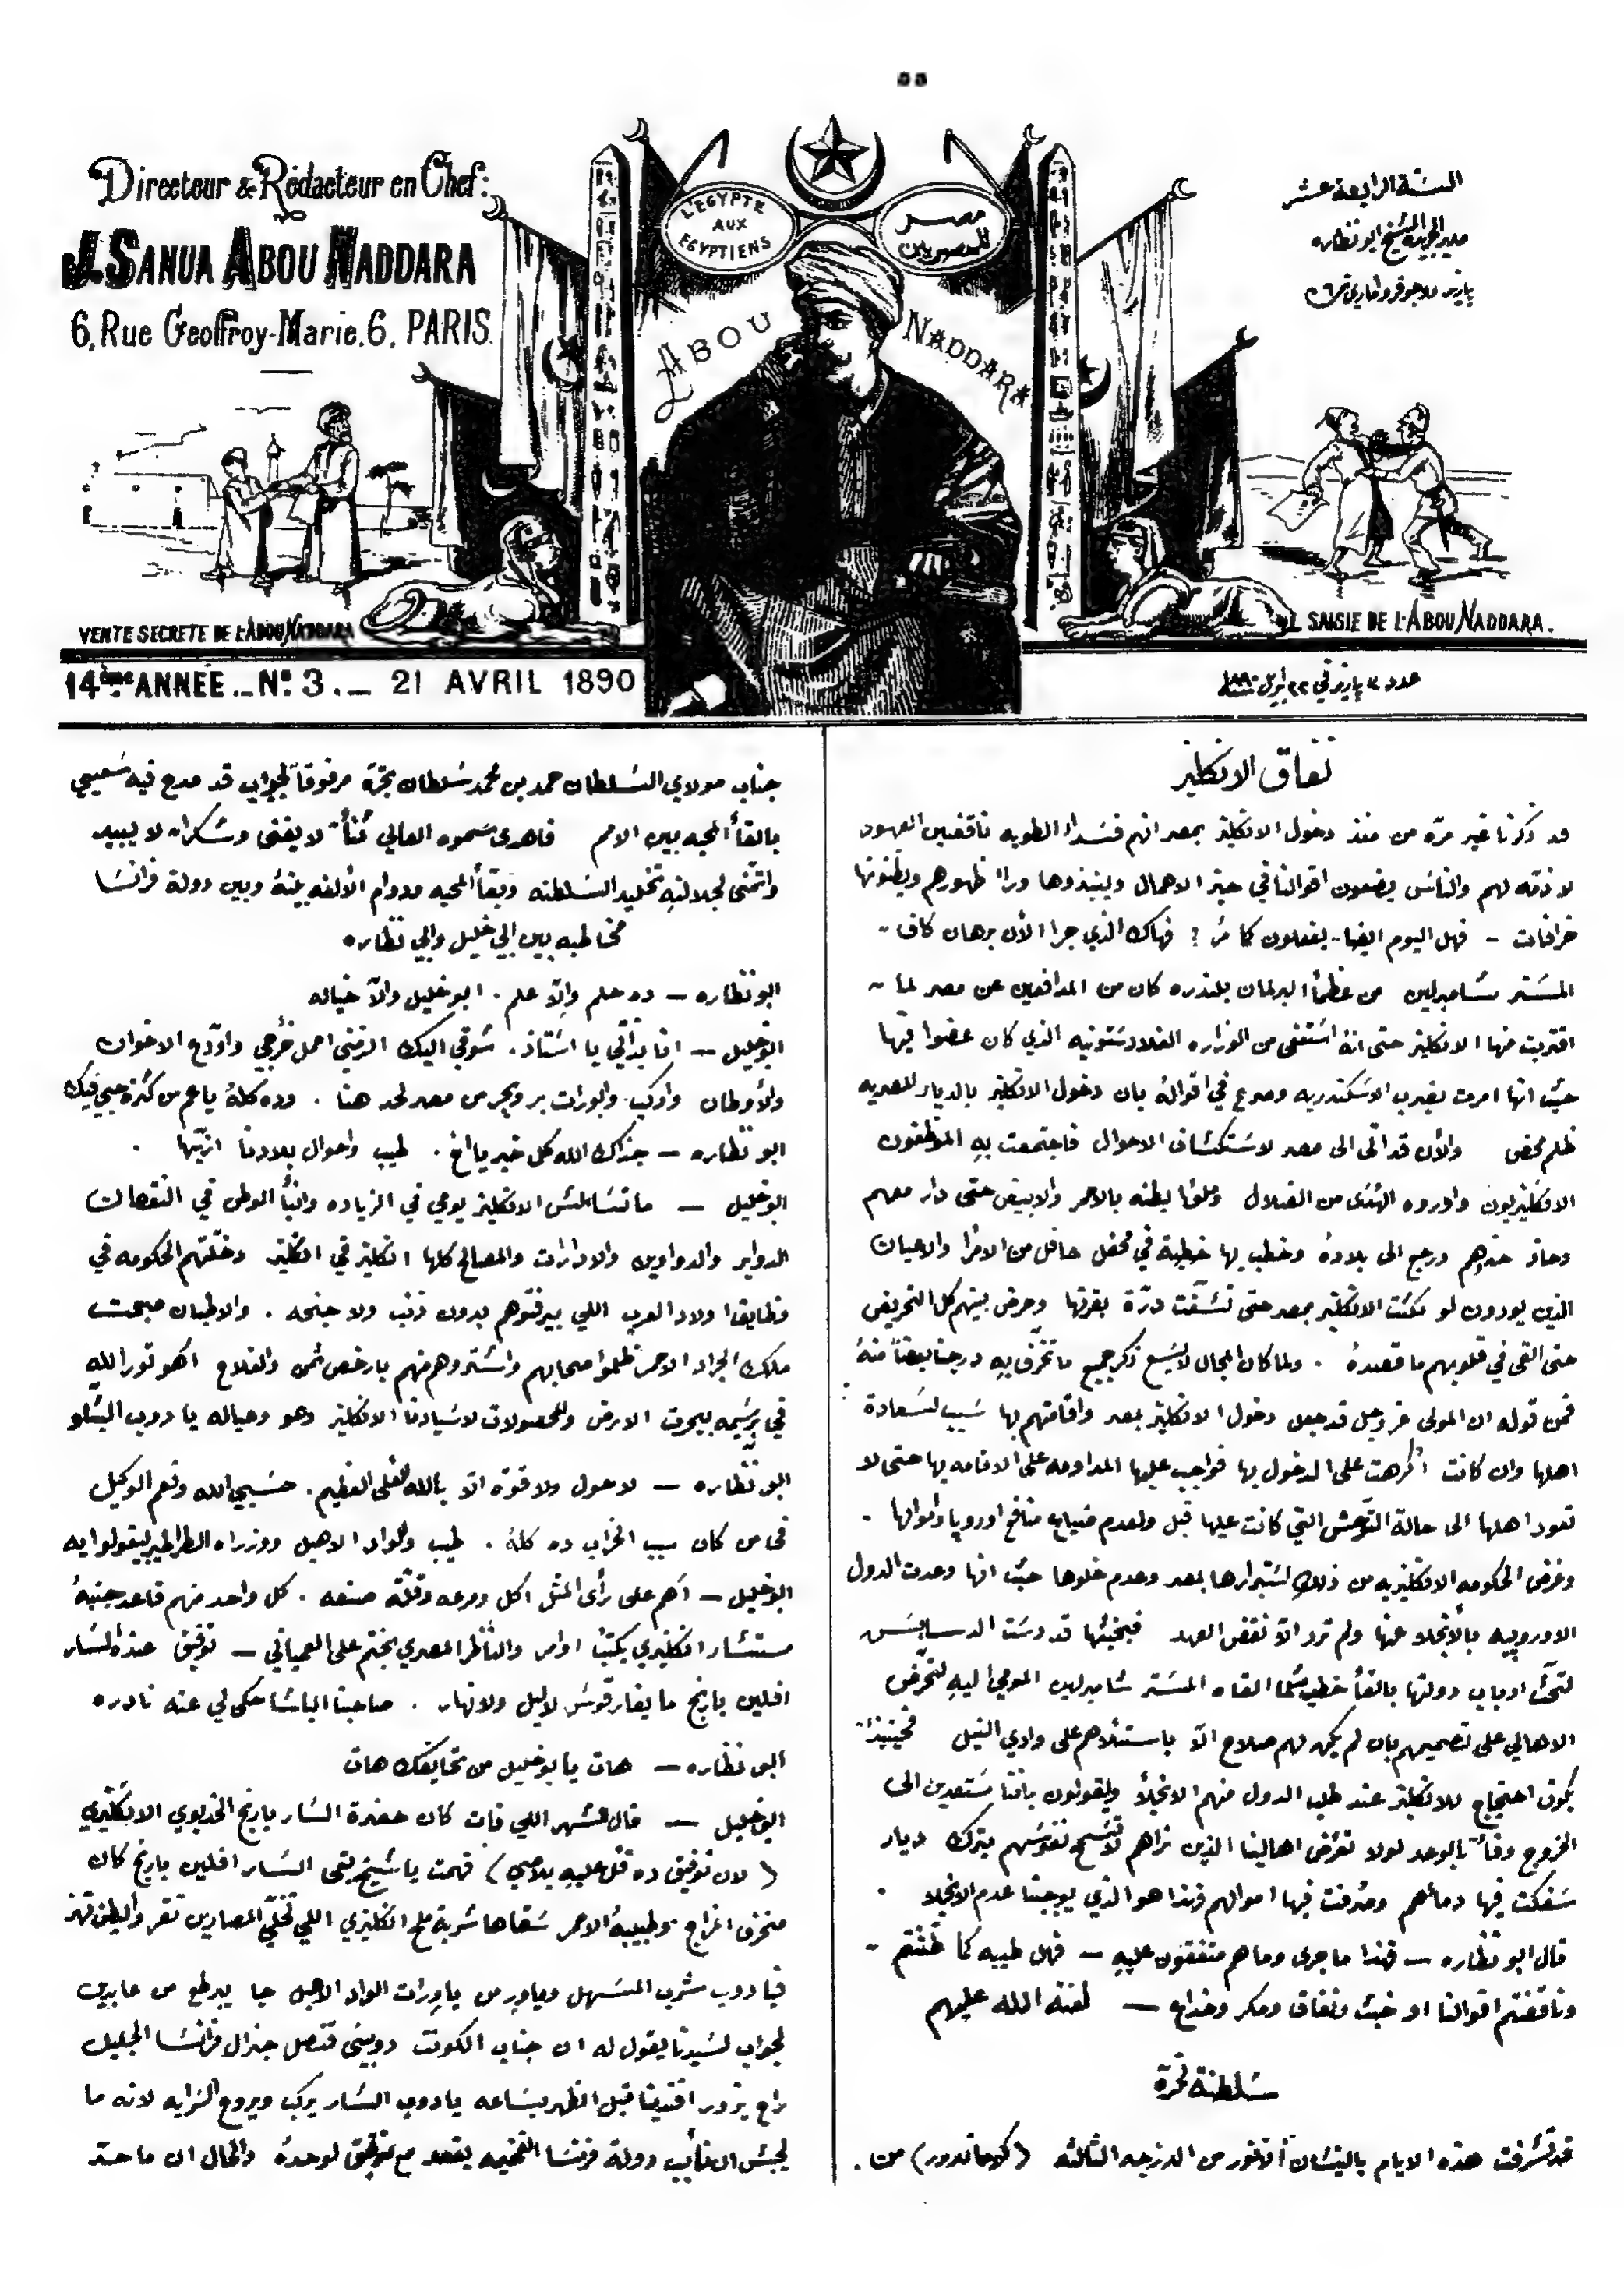 Directeur & Rédacteur en Chef:
J. SANUA ABOU NADDARA
6, Rue Geoffroy-Marie. 6, PARIS.
L'EGYPTE
AUX
EGYPTIENS
مصر
للمصريين
ABOU NADDARA
السنة الرابعة عشر
مدير الجريدة الشيخ ابو نظاره
VENTE SECRETE DE L'ABOU NADDARA
SAISIE DE L'ABOU NADDARA.
14ème ANNÉE _ No. 3. _ 21 AVRIL 1890
نفاق الانكليز
قد ذكرنا غير مرّه من منذ دخول الانكليز بمصر انهم فسداء الطويه ناقضين العهود
لا ذمّه لهم والناس يضعون اقوالنا في حيّز الاهمال وينبذوها وراء ظهورهم ويظنونها
خرافات - فهل اليوم ايضا يفعلون كما مرّ ؟ فهاك الذي جرا الأن برهان كاف
المستر شامبرلين من عظمأ البرلمان بلندره كان من المدافعين عن مصر لما
اقتربت منها الانكليز حتى انهُ استعفى من الوزاره الغلادستونيه الذي كان عضوا فيها
حيث انها امرت بضرب الاسكندريه وصرع في اقوالهُ بان دخول الانكليز بالديار المصريه
ظلم محض والأن قد اتى الى مصر لاستكشاف الاحوال فاجتمعت بهِ الموظفون
الانكليزيون واوروه الهدى من الضلال وملؤا بطنه بالاحمر والابيض حتى دار معهم
وحاذ حذوهم ورجع الى بلادهُ وخطب بها خطبة في محفل حافل من الامرا والاعيان
الذين يودون لو مكثت الانكليز بمصر حتى تنشقت درّة بقرتها وحرض بينهم كل التحريض
حتى القى في قلوبهم ما قصدهُ . ولما كان المجال لا يسع ذكر جميع ما تخرّف بهِ درجنا بعضاً منهُ
فمن قوله ان المولى عز وجل قد جعل دخول الانكليز بمصر واقامتهم بها سبب لسعادة
اهلها وان كانت أكرهت على الدخول بها فواجب عليها المداومه على الاقامه بها حتى لا
تعود اهلها الى حالة التوحش التي كانت عليها قبل ولعدم ضياع منافع اوروپا واموالها .
وغرض الحكومه الانكليزيه من ذلك استمرارها بمصر وعدم خلوها حيث انها وعدت الدول
الاوروپيه بالانجلاء عنها ولم ترد الاّ نقض العهد فبخبثها قد دست الدسايس
لتحث ارباب دولتها بالقأ خطب مثلما القاه المستر شامبرلين المومي اليهِ لتحرّض
الاهالي على تصميمهم بان لم يكن لهم صلاح الاّ باستئلاهم على وادي النيل فحينئذ
يكون احتجاج للانكليز عند طلب الدول منهم الانجلأ ويقولون باننا مستعدين الى
الخروج وفأ بالوعد لولا تعرّض اهالينا الذين نراهم لا تسمح نفوسهم بترك ديار
سفكت فيها دمائهم وصُرفت فيها اموالهم فهذا هو الذي يوجبنا عدم الانجلا .
قال ابو نظاره — فهذا ما جرى وما هم متفقون عليهِ — فهل طيبه كما ظننتم
وناقضتم اقوالنا او خبث ونفاق ومكر وخداع — لعنة الله عليهم
سلطنة نجزة
قد تشرفت هذه الايام بالنيشان الأنور من الدرجه الثالثه (كوماندور) من
جناب مولاي السلطان حمد بن محمد سلطان نجزة مرفوقاً بجواب قد مدح فيه سعيي
بالقأ المحبه بين الامم فاهدى سموه العالي ثنأ لا يفنى وشكران لا يبيد
واتمنى لجلالتهِ تخليد السلطنه وبقأ المحبه ودوام الألفه بينهُ وبين دولة فرانسا
مخاطبه بين ابي خليل وابي نظاره
ابو نظاره — ده حلم والاّ علم . ابو خليل والاّ خياله
ابو خليل — انا بذاتي يا استاذ . شوقي اليك الزمني احمل خُرجي واودّع الاخوان
والأوطان واركب وابورات بر وبحر من مصر لحد هنا . وده كلهُ يا عم من كثرة حبي فيك
ابو نظاره — جذاك الله كل خير يا اخ . طيب واحوال بلادنا ازيّها .
ابو خليل — ما تسألش الانكليز يومي في الزياده وابنأ الوطن في النقصان
الدواير والدواوين والادارات والمصالح كلها انكليز في انكليز دخّلتهم الحكومه في
وظايف اولاد العرب اللي بيرفتوهم بدون ذنب ولا جنحه . والاطيان صبحت
ملك الجراد الاحمر ظلموا صحابهم واشتروهم منهم بارخص ثمن والفلاح اهو تور الله
في برسيمه بيحرت الارض والمحصولات لاسيادنا الانكليز وهو وعياله يا دوب الشلو
ابو نظاره — لا حول ولا قوّة الاّ بالله العلي العظيم . حسبي الله ونعم الوكيل
في من كان سبب الخراب ده كلهُ . طيب والواد الاهبل ووزراه الطراطير بيقولوا ايه
ابو خليل — اهم على رأى المثل اكل ومرعه وقلّة صنعه . كل واحد منهم قاعد جنبهُ
مستشار انكليزي يكتب اوامر والناظر المصري يختم على العمياني — توفيق عنده السار
افلين بارنج ما يفارقوش لا ليل ولا نهار . صاحبنا الباشا حكى لي عنه نادره
ابو نظاره — هات يا بو خليل من تحايفك هات
ابو خليل — قال الشهر اللي فات كان حضرة السار بارنج الخديوي الانكليزي
( لان توفيق ده قُل عليهِ بلاصي ) فهمت يا شيخ بقى السار افلين بارنج كان
منحرف المزاج وطبيبهُ الاحمر سقاها شربة ملح انكليزي اللي تخلّي المصارين تقر والبطن تهز
فيا دوب شرب المسهل وياور من ياورات الواد الاهبل جا يبرطع من عابدين
بجواب لسيدنا يقول له ان جناب الكونت دوبيني قنصل جنرال فرانسا الجليل
راح يزور افندينا قبل الظهر بساعه يا دوب السار يركب ويروح السرايه لانه ما
يحبش ان نأيب دولة فرنسا الفخيمه يقعد مع توفيق لوحدهُ والحال ان ما حدّ